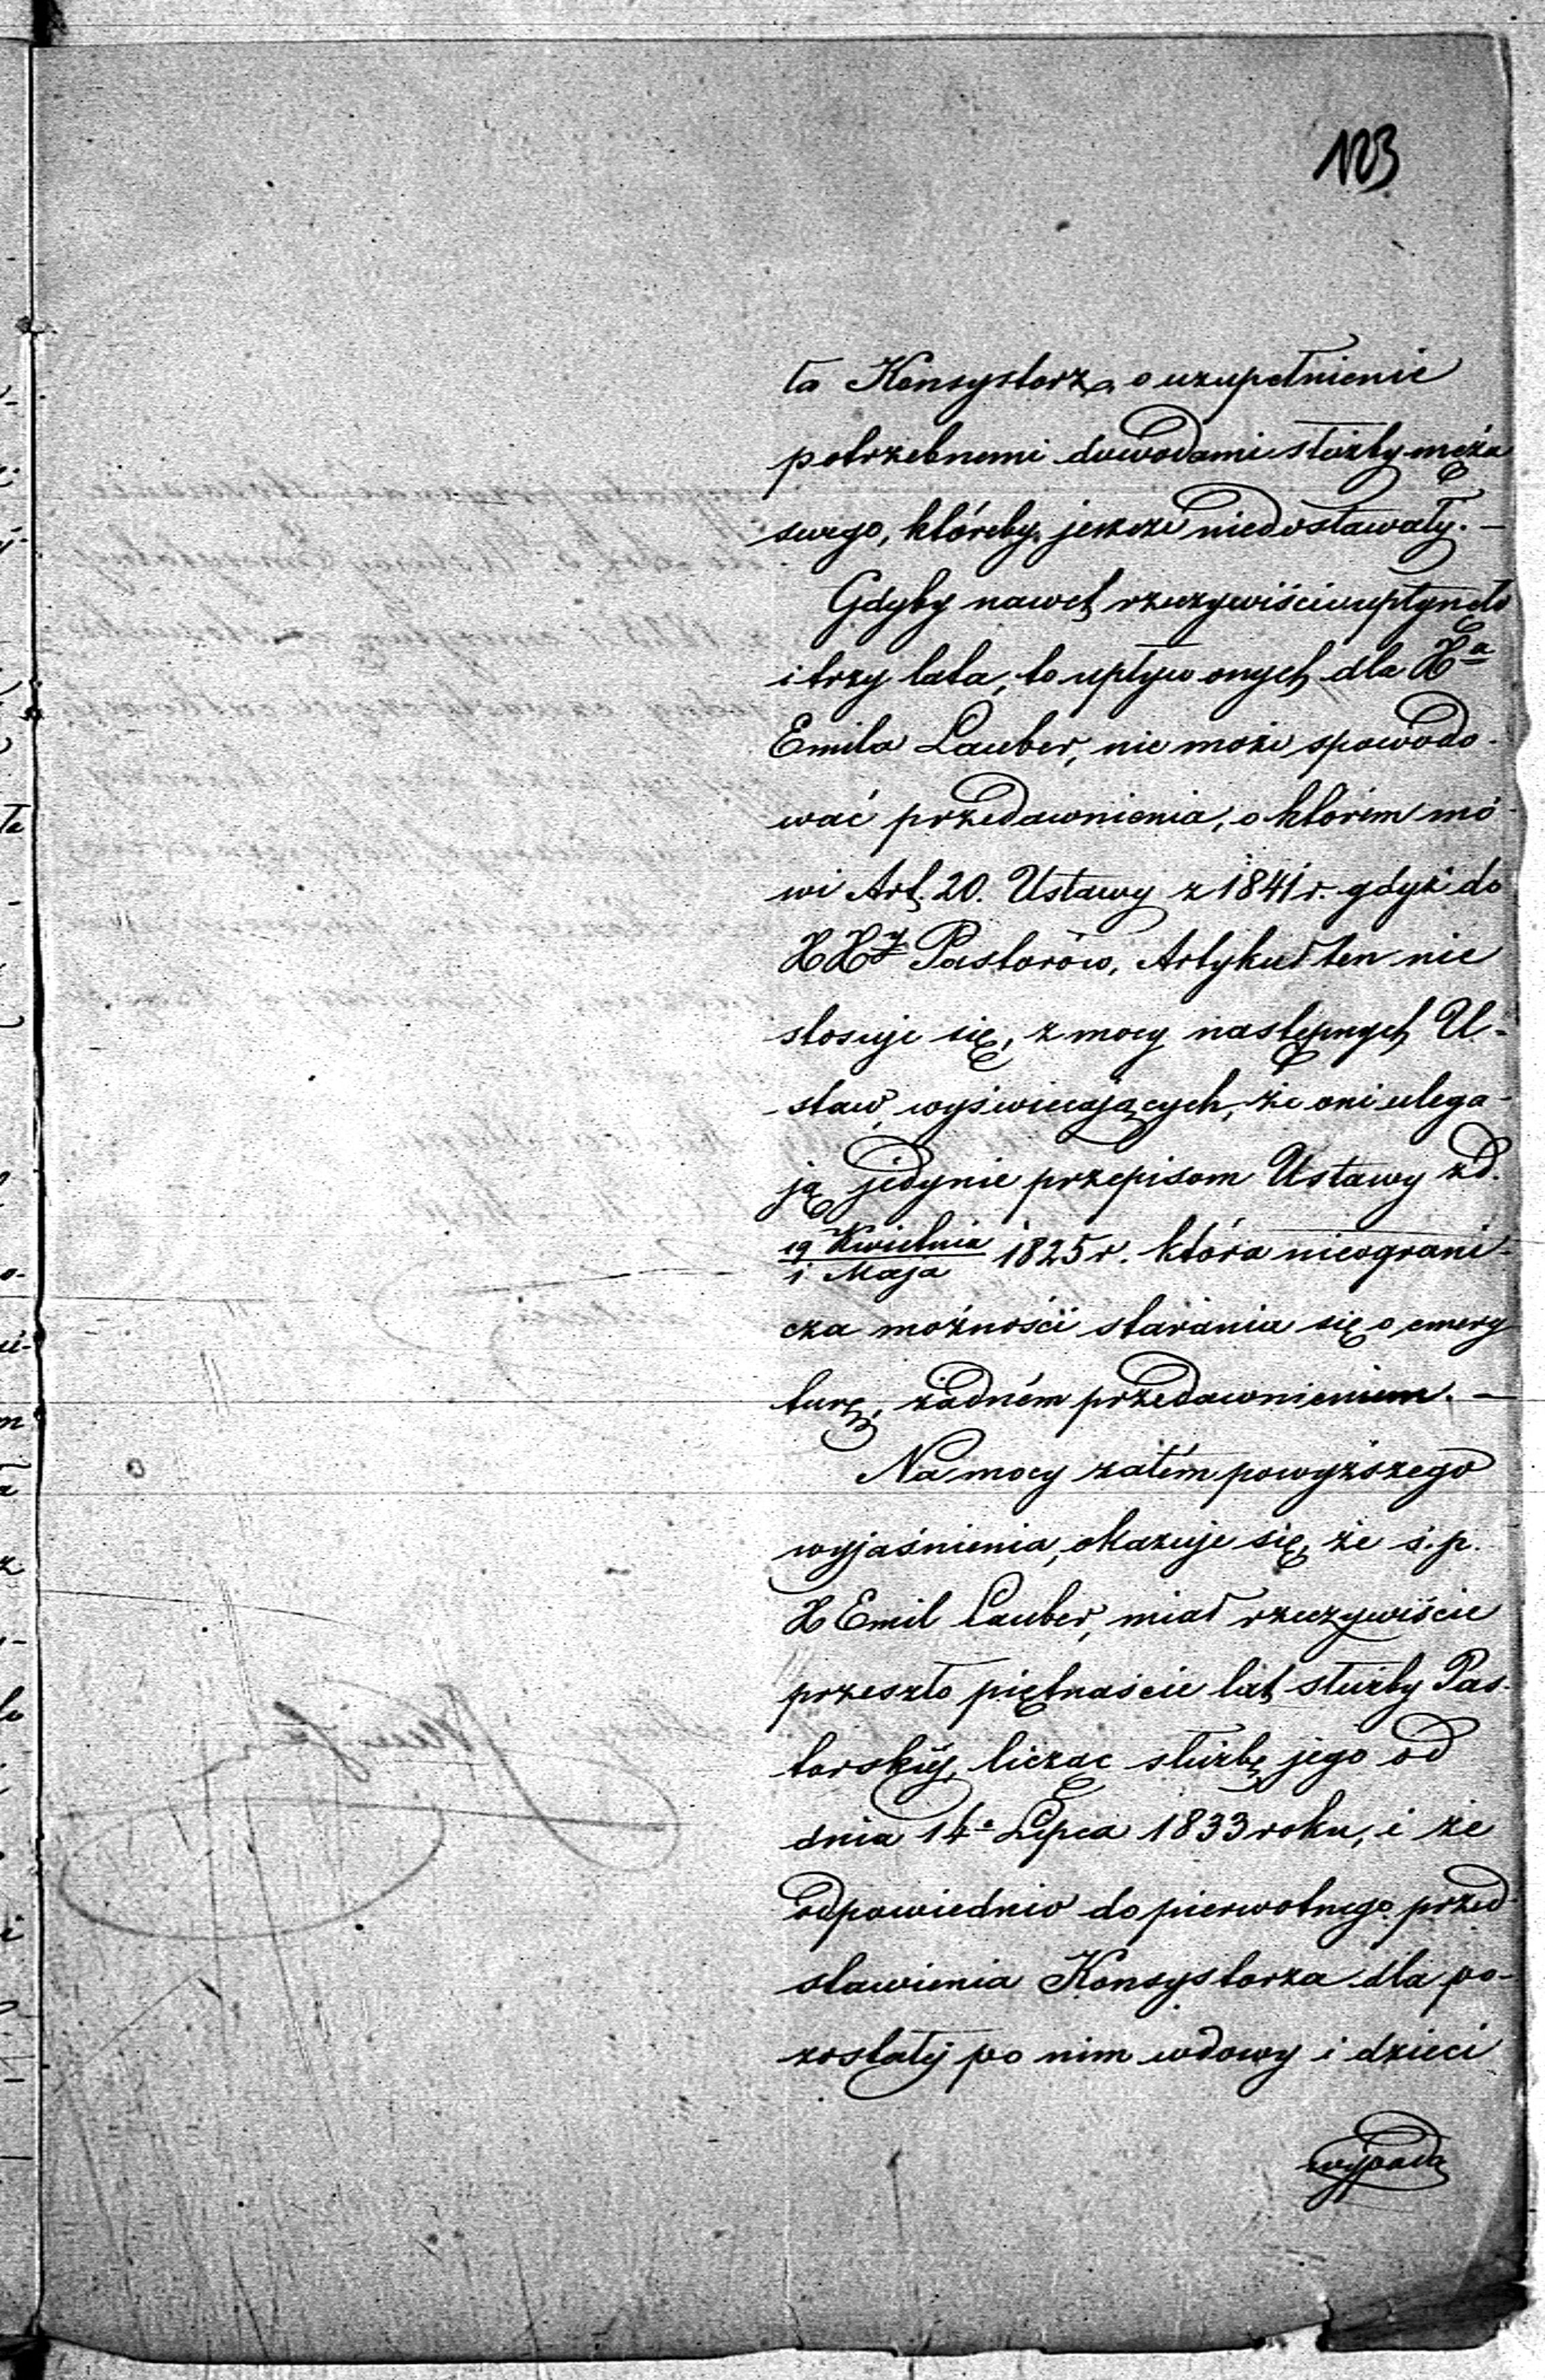 123
ła Konsystorza o uzupełnienie
potrzebnemi dowodami służby męża
swego, któreby jeszcze niedostawały. —
Gdyby nawet rzeczywiście upłynęło
i trzy lata, to upływ onych dla Xa
Emila Lauber, nie może spowodo-
wać przedawnienia, o którém mó-
wi Art. 20. Ustawy z 1841 r. gdyż do
XXy Pastorów, Artykuł ten nie
stosuje się, z mocy następnych U-
staw wyświecających, że oni ulega-
ją jedynie przepisom Ustawy z d.
19 Kwietnia / 1 Maja 1825 r. która nieograni-
cza możności starania się o emery
turę, żadném przedawnieniem. —
Na mocy zatém powyższego
wyjaśnienia, okazuje się, że ś. p.
X Emil Lauber, miał rzeczywiście
przeszło piętnaście lat służby Pas-
torskiéj, licząc służbę jego od
dnia 14. Lipca 1833 roku, i że
odpowiednio do pierwotnego przed-
stawienia Konsystorza dla po-
zostałéj po nim wdowy i dzieci
wypada